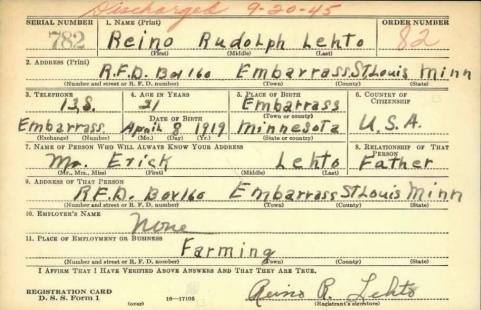 Discharged 9-20-45
SERIAL NUMBER 1. NAME (Print) ORDER NUMBER
782 Reino Rudolph Lehto 82
(First) (Middle) (Last)
2. ADDRESS (Print)
R.F.D. Box 160 Embarrass St Louis Minn
(Number and street or R. F. D. number) (Town) (County) (State)
3. TELEPHONE 4. AGE IN YEARS 5. PLACE OF BIRTH 6. COUNTRY OF CITIZENSHIP
13,8 21 Embarrass
DATE OF BIRTH (Town or county)
Embarrass April 8 1919 Minnesota U.S.A.
(Exchange) (Number) (Mo.) (Day) (Yr.) (State or country)
7. NAME OF PERSON WHO WILL ALWAYS KNOW YOUR ADDRESS 8. RELATIONSHIP OF THAT PERSON
Mr. Erick Lehto Father
(Mr., Mrs., Miss) (First) (Middle) (Last)
9. ADDRESS OF THAT PERSON
R.F.D. Box 160 Embarrass St Louis Minn
(Number and street or R. F. D. number) (Town) (County) (State)
10. EMPLOYER'S NAME
None
11. PLACE OF EMPLOYMENT OR BUSINESS
Farming
(Number and street or R. F. D. number) (Town) (County) (State)
I AFFIRM THAT I HAVE VERIFIED ABOVE ANSWERS AND THAT THEY ARE TRUE.
REGISTRATION CARD Reino R. Lehto
D. S. S. Form 1 (over) 16—17105 (Registrant's signature)